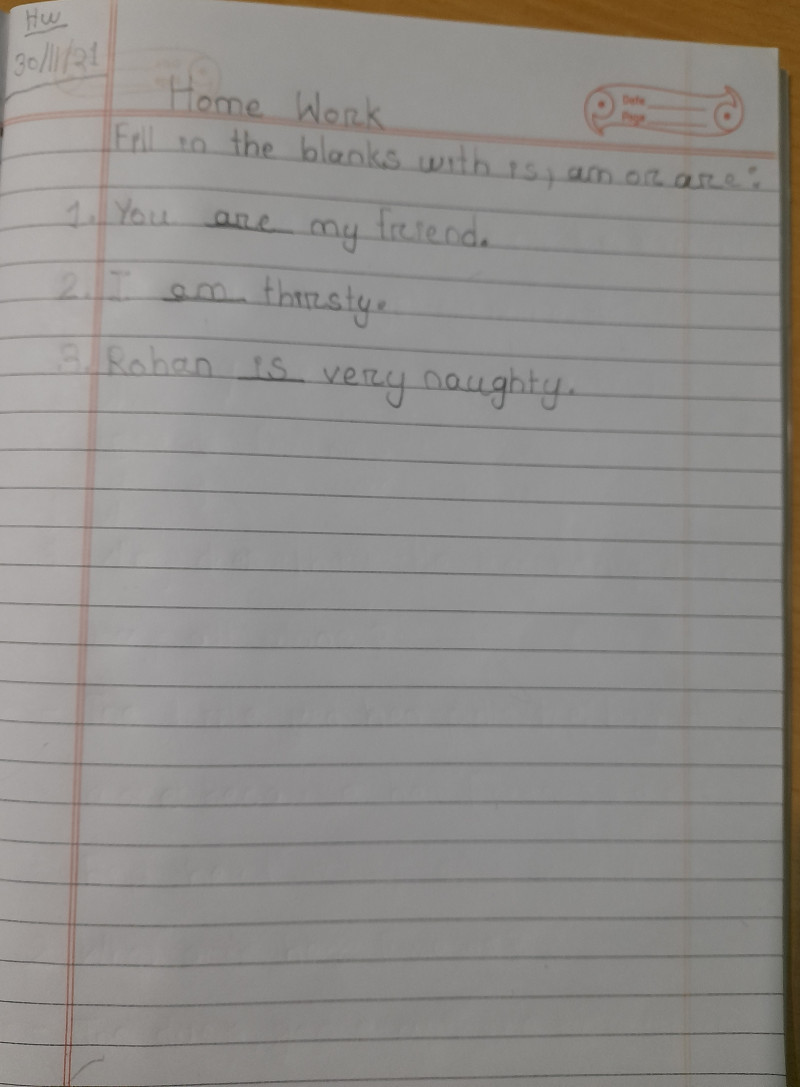 HW
30/11/21
Date
Page
Home Work
Fill in the blanks with is, am or are:
1. You are my friend.
2. I am thirsty.
3. Rohan is very naughty.